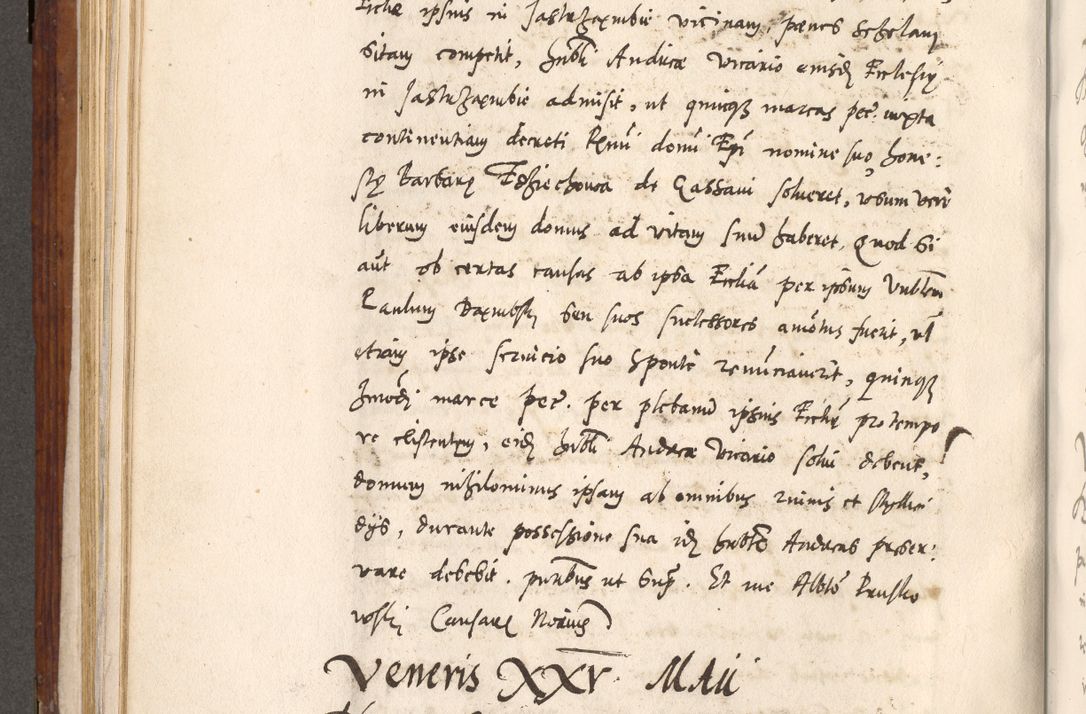 Ecclie ipsius in Jastrzambie vicinam, penes scholam
sitam competit, Hnbli Andree vicario eiusdem Ecclesiẹ
in Jastrzambie admisit, ut quinque marcas pec. iuxta
continentiam decreti Rmi domi Epi nomine suo hone:
stẹ Barbarẹ Fdziechowa de Cassavi solueret, usum vero
liberum eiusdem domus ad vitam suam haberet. Quod si
aut ob certas causas ab ipsa Ecclia per ipsum Vnblem
Paulum Dambsky seu suos successores amotus fuerit, vel
etiam ipse servicio suo sponte renunciaverit, quinque
hmodi marce pec. per plebanum ipsius Ecclie pro tempo
re existentem, eidem Hnbli Andree Vicario solvi debent,
domum nihilominus ipsam ab omnibus ruinis et stillici
dys, durante possessione sua idem hnblis Andreas preser:
vare debebit. pntibus ut supra. Et me Alberto Prusko
wsky Causarum Notario
Veneris XXV MAii